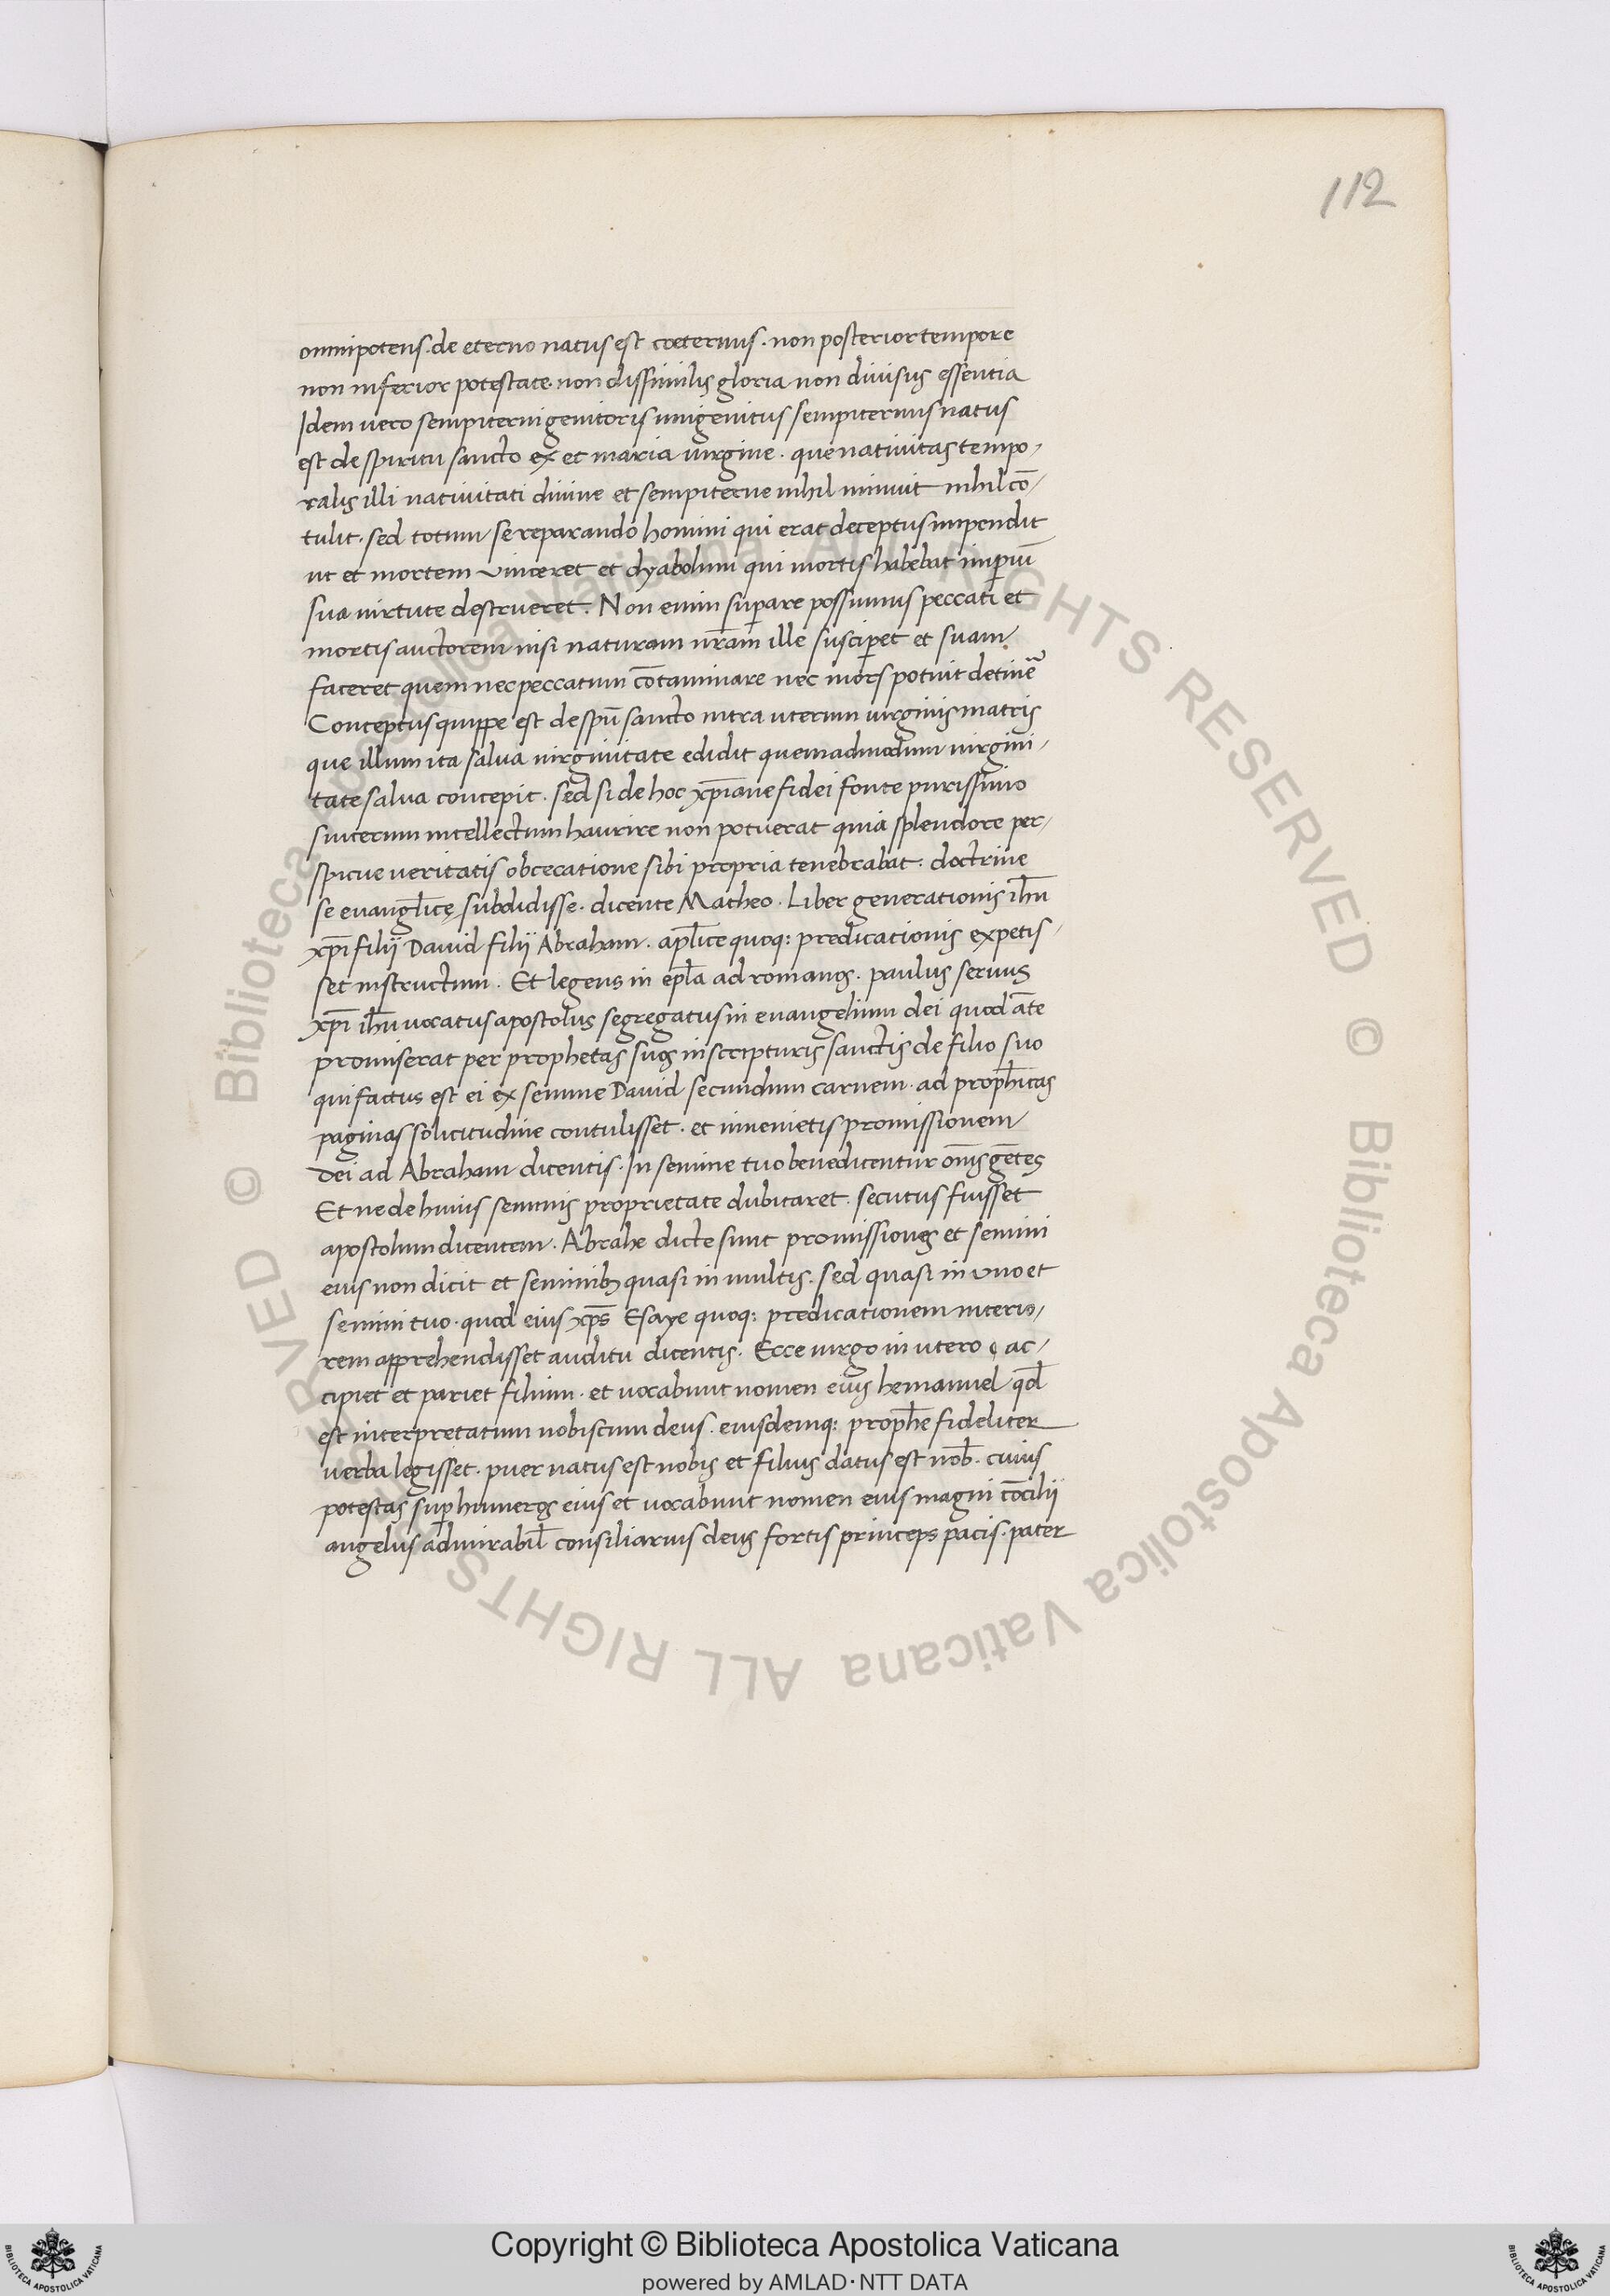 112
omnipotens. de eterno natus est coeternus. non posterior tempore
non inferior potestate. non dissimilis gloria non divisus essentia
Idem vero sempiterni genitoris unigenitus sempiternus natus
est de spiritu sancto ex et maria virgine. que nativitas tempo-
ralis illi nativitati divine et sempiterne nihil minuit nihil cō-
tulit. sed totum se reparando homini qui erat deceptus impendit
ut et mortem vinceret et dyabolum qui mortis habebat imꝑiū
sua virtute destrueret. Non enim suꝑare possumus peccati et
mortis auctorem nisi naturam nr̄am ille susciꝑet et suam
faceret quem nec peccatum cōtaminare nec mors potuit detinē
Conceptus quippe est de spū sancto intra uterum virginis matris
que illum ita salva virginitate edidit quemadmodum virgini-
tate salva concepit. sed si de hoc xp̄iane fidei fonte purissimo
sincerum intellectum haurire non potuerat quia splendore per-
spicue veritatis obcecatione sibi propria tenebrabat. doctrine
se evangl̄icę subdidisse. dicente Matheo. Liber generationis ih̄u
xp̄i filii David filii Abraham. apl̄ice quoq: predicationis expetis-
set instructum. Et legens in epl̄a ad romanos. paulus servus
xp̄i ih̄u vocatus apostolus segregatus in evangelium dei quod āte
promiserat per prophetas suos in scripturis sanctis de filio suo
qui factus est ei ex semine David secundum carnem. ad proph̄icas
paginas solicitudine contulisset. et invenietis promissionem
Dei ad Abraham dicentis. In semine tuo benedicentur om̄s gētes
Et ne de huius seminis proprietate dubitaret. secutus fuisset
apostolum dicentem. Abrahe dicte sunt promissiones et semini
eius non dicit et seminibꝫ quasi in multis. sed quasi in uno et
semini tuo. quod eius xp̄s Esaye quoq: predicationem interio-
rem apprehendisset auditu dicentis. Ecce virgo in utero ac-
cipiet et pariet filium. et vocabunt nomen eius hemanuel qd̄
est interpretatum nobiscum deus. eiusdemq: proph̄e fideliter
verba legisset. puer natus est nobis et filius datus est nob̄. cuius
potestas suꝑ humeros eius et vocabunt nomen eius magni cōcilii
angelus admirabil̄ consiliarius deus fortis princeps pacis. pater
© Biblioteca Apostolica Vaticana ALL RIGHTS RESERVED
© Biblioteca Apostolica Vaticana ALL RIGHTS RESERVED
Copyright © Biblioteca Apostolica Vaticana
powered by AMLAD・NTT DATA
BIBLIOTECA APOSTOLICA VATICANA
BIBLIOTECA APOSTOLICA VATICANA